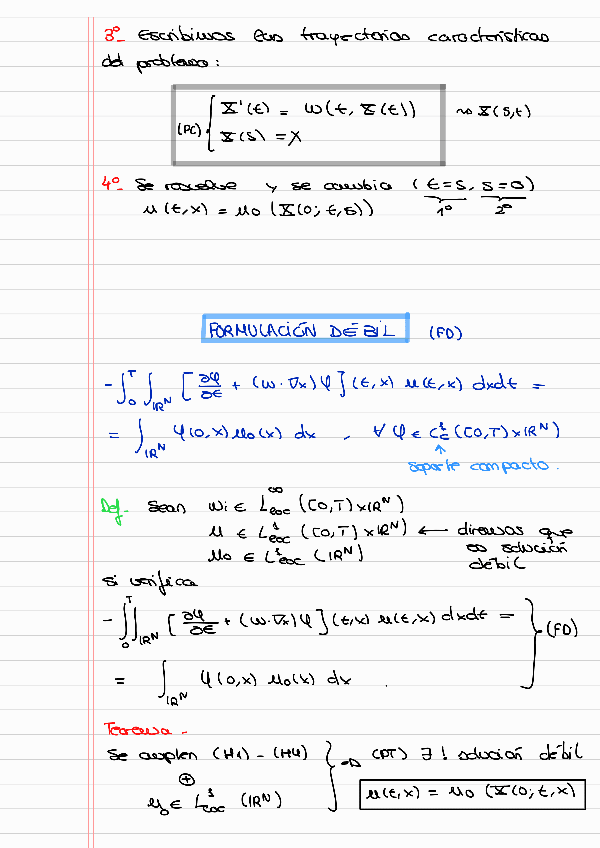 3º_ Escribimos las trayectorias características
del problema:
(PC) { X'(t) = w(t, X(t))
X(s) = x
~> X(s,t)
4º_ Se resuelve y se cambia (t=s, s=0)
1º 2º
u(t,x) = u0 (X(0; t,s))
FORMULACIÓN DÉBIL (FD)
-∫_0^T ∫_{IR^N} [∂φ/∂t + (w·∇x)φ](t,x) u(t,x) dxdt =
= ∫_{IR^N} φ(0,x) u0(x) dx , ∀ φ ∈ C_c^1([0,T)×IR^N)
↑
soporte compacto.
Def_ Sean wi ∈ L_loc^∞ ([0,T)×IR^N)
u ∈ L_loc^1 ([0,T)×IR^N) ← diremos que
es solución
débil
u0 ∈ L_loc^1 (IR^N)
si verifica
-∫_0^T ∫_{IR^N} [∂φ/∂t + (w·∇x)φ](t,x) u(t,x) dxdt =
= ∫_{IR^N} φ(0,x) u0(x) dx .
} (FD)
Teorema -
Se cumplen (H1) - (H4) } => (PT) ∃! solución débil
⊕
u0 ∈ L_loc^1 (IR^N)
u(t,x) = u0 (X(0; t,x)